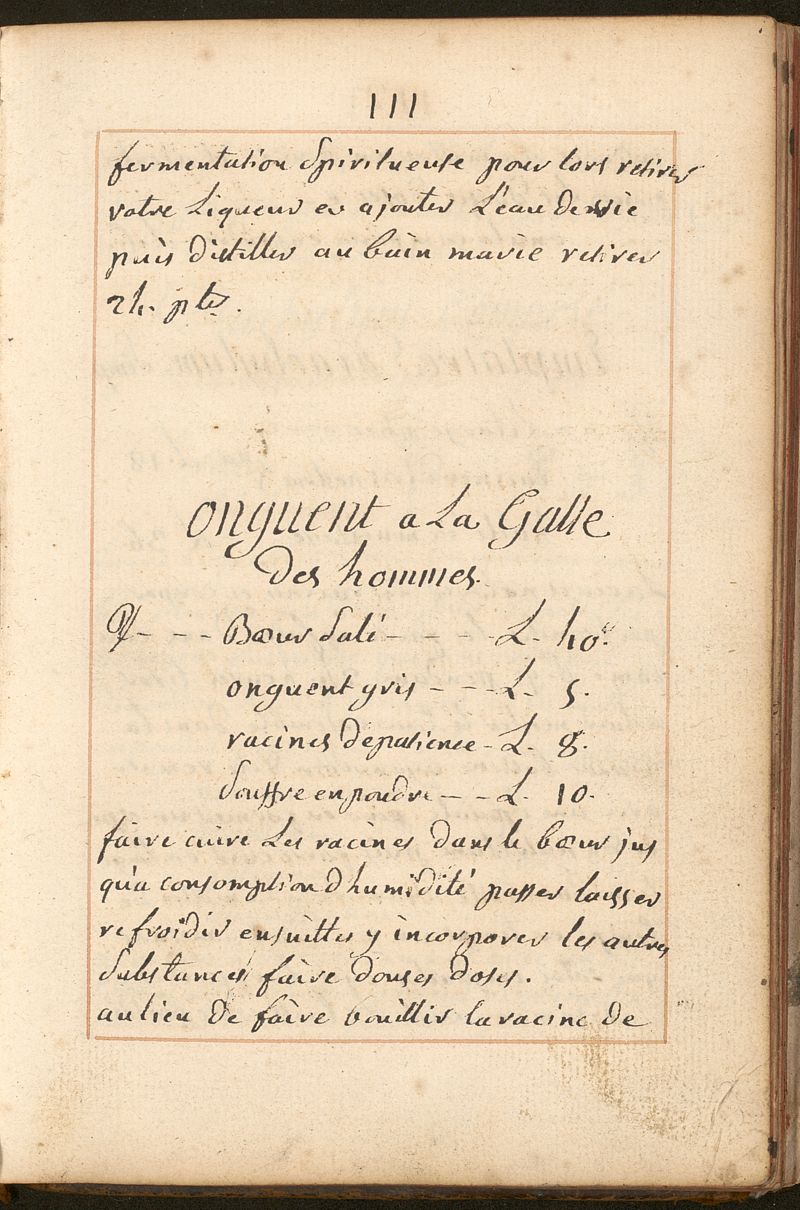 111
fermentation Spiritueuse pour lors retirer
votre Liqueur et ajouter L'eau de vie
puis distiller au bain marie retirer
24. ptes.
onguent a La Galle
des hommes.
Bœur Salé - - - - L. 40.
onguent gris - - - L. 5.
racines de patience - L. 8.
Souffre en poudre - - L. 10.
faire cuire Les racines dans le bœur jus
qu'a consomption d humidité passer laisser
refroidir ensuittes y incorporer les autres
Substances faire douses doses.
au lieu de faire bouillir la racine de